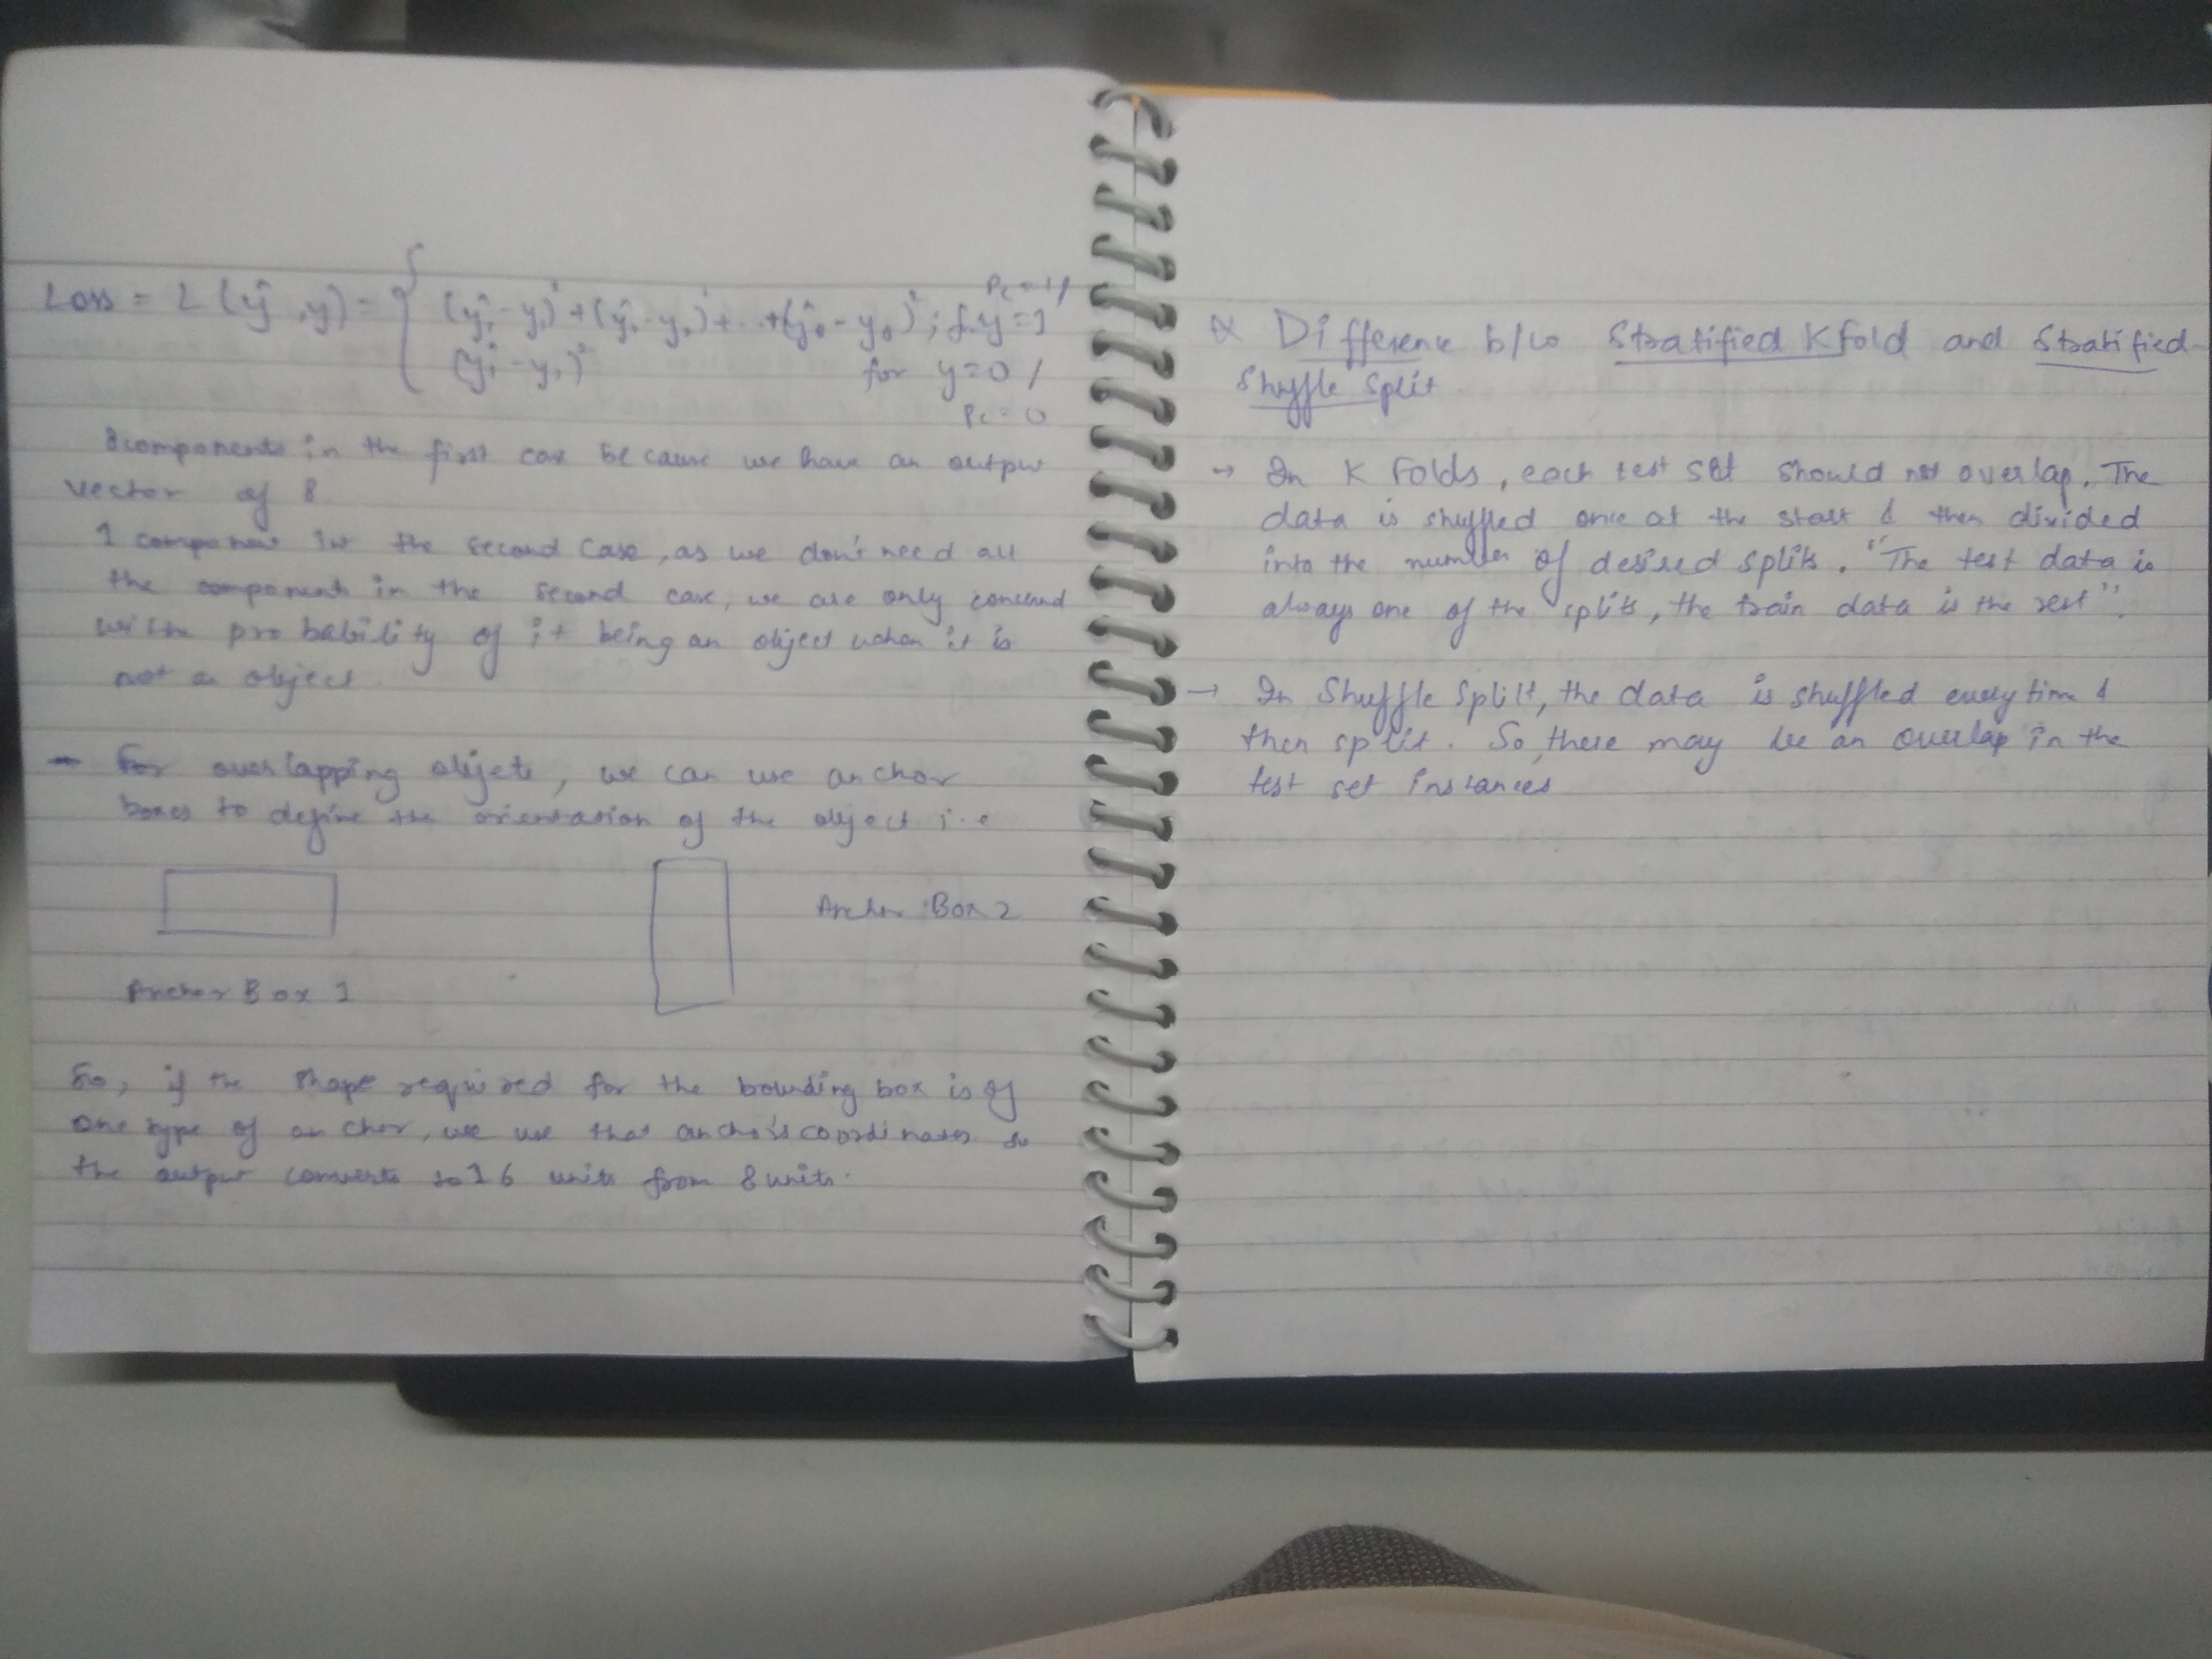 Pc = 1/
Loss = L(ŷ, y) = { (ŷ₁ - y₁)² + (ŷ₂ - y₂)² + ... + (ŷ₈ - y₈)² ; f. y = 1
(ŷ₁ - y₁)² for y = 0 /
Pc = 0
8 components in the first case because we have an output
vector of 8.
1 component in the second case, as we don't need all
the components in the second case, we are only concerned
with probability of it being an object when it is
not an object
- For overlapping objects, we can use anchor
boxes to define the orientation of the object i.e
Anchor Box 2
Anchor Box 1
So, if the shape required for the bounding box is of
one type of anchor, we use that anchor's coordinates so
the output converts to 16 units from 8 units.
Difference b/w Stratified Kfold and Stratified-
Shuffle Split.
→ In K Folds, each test set should not overlap. The
data is shuffled once at the start & then divided
into the number of desired splits. "The test data is
always one of the splits, the train data is the rest".
→ In Shuffle Split, the data is shuffled every time &
then split. So, there may be an overlap in the
test set instances